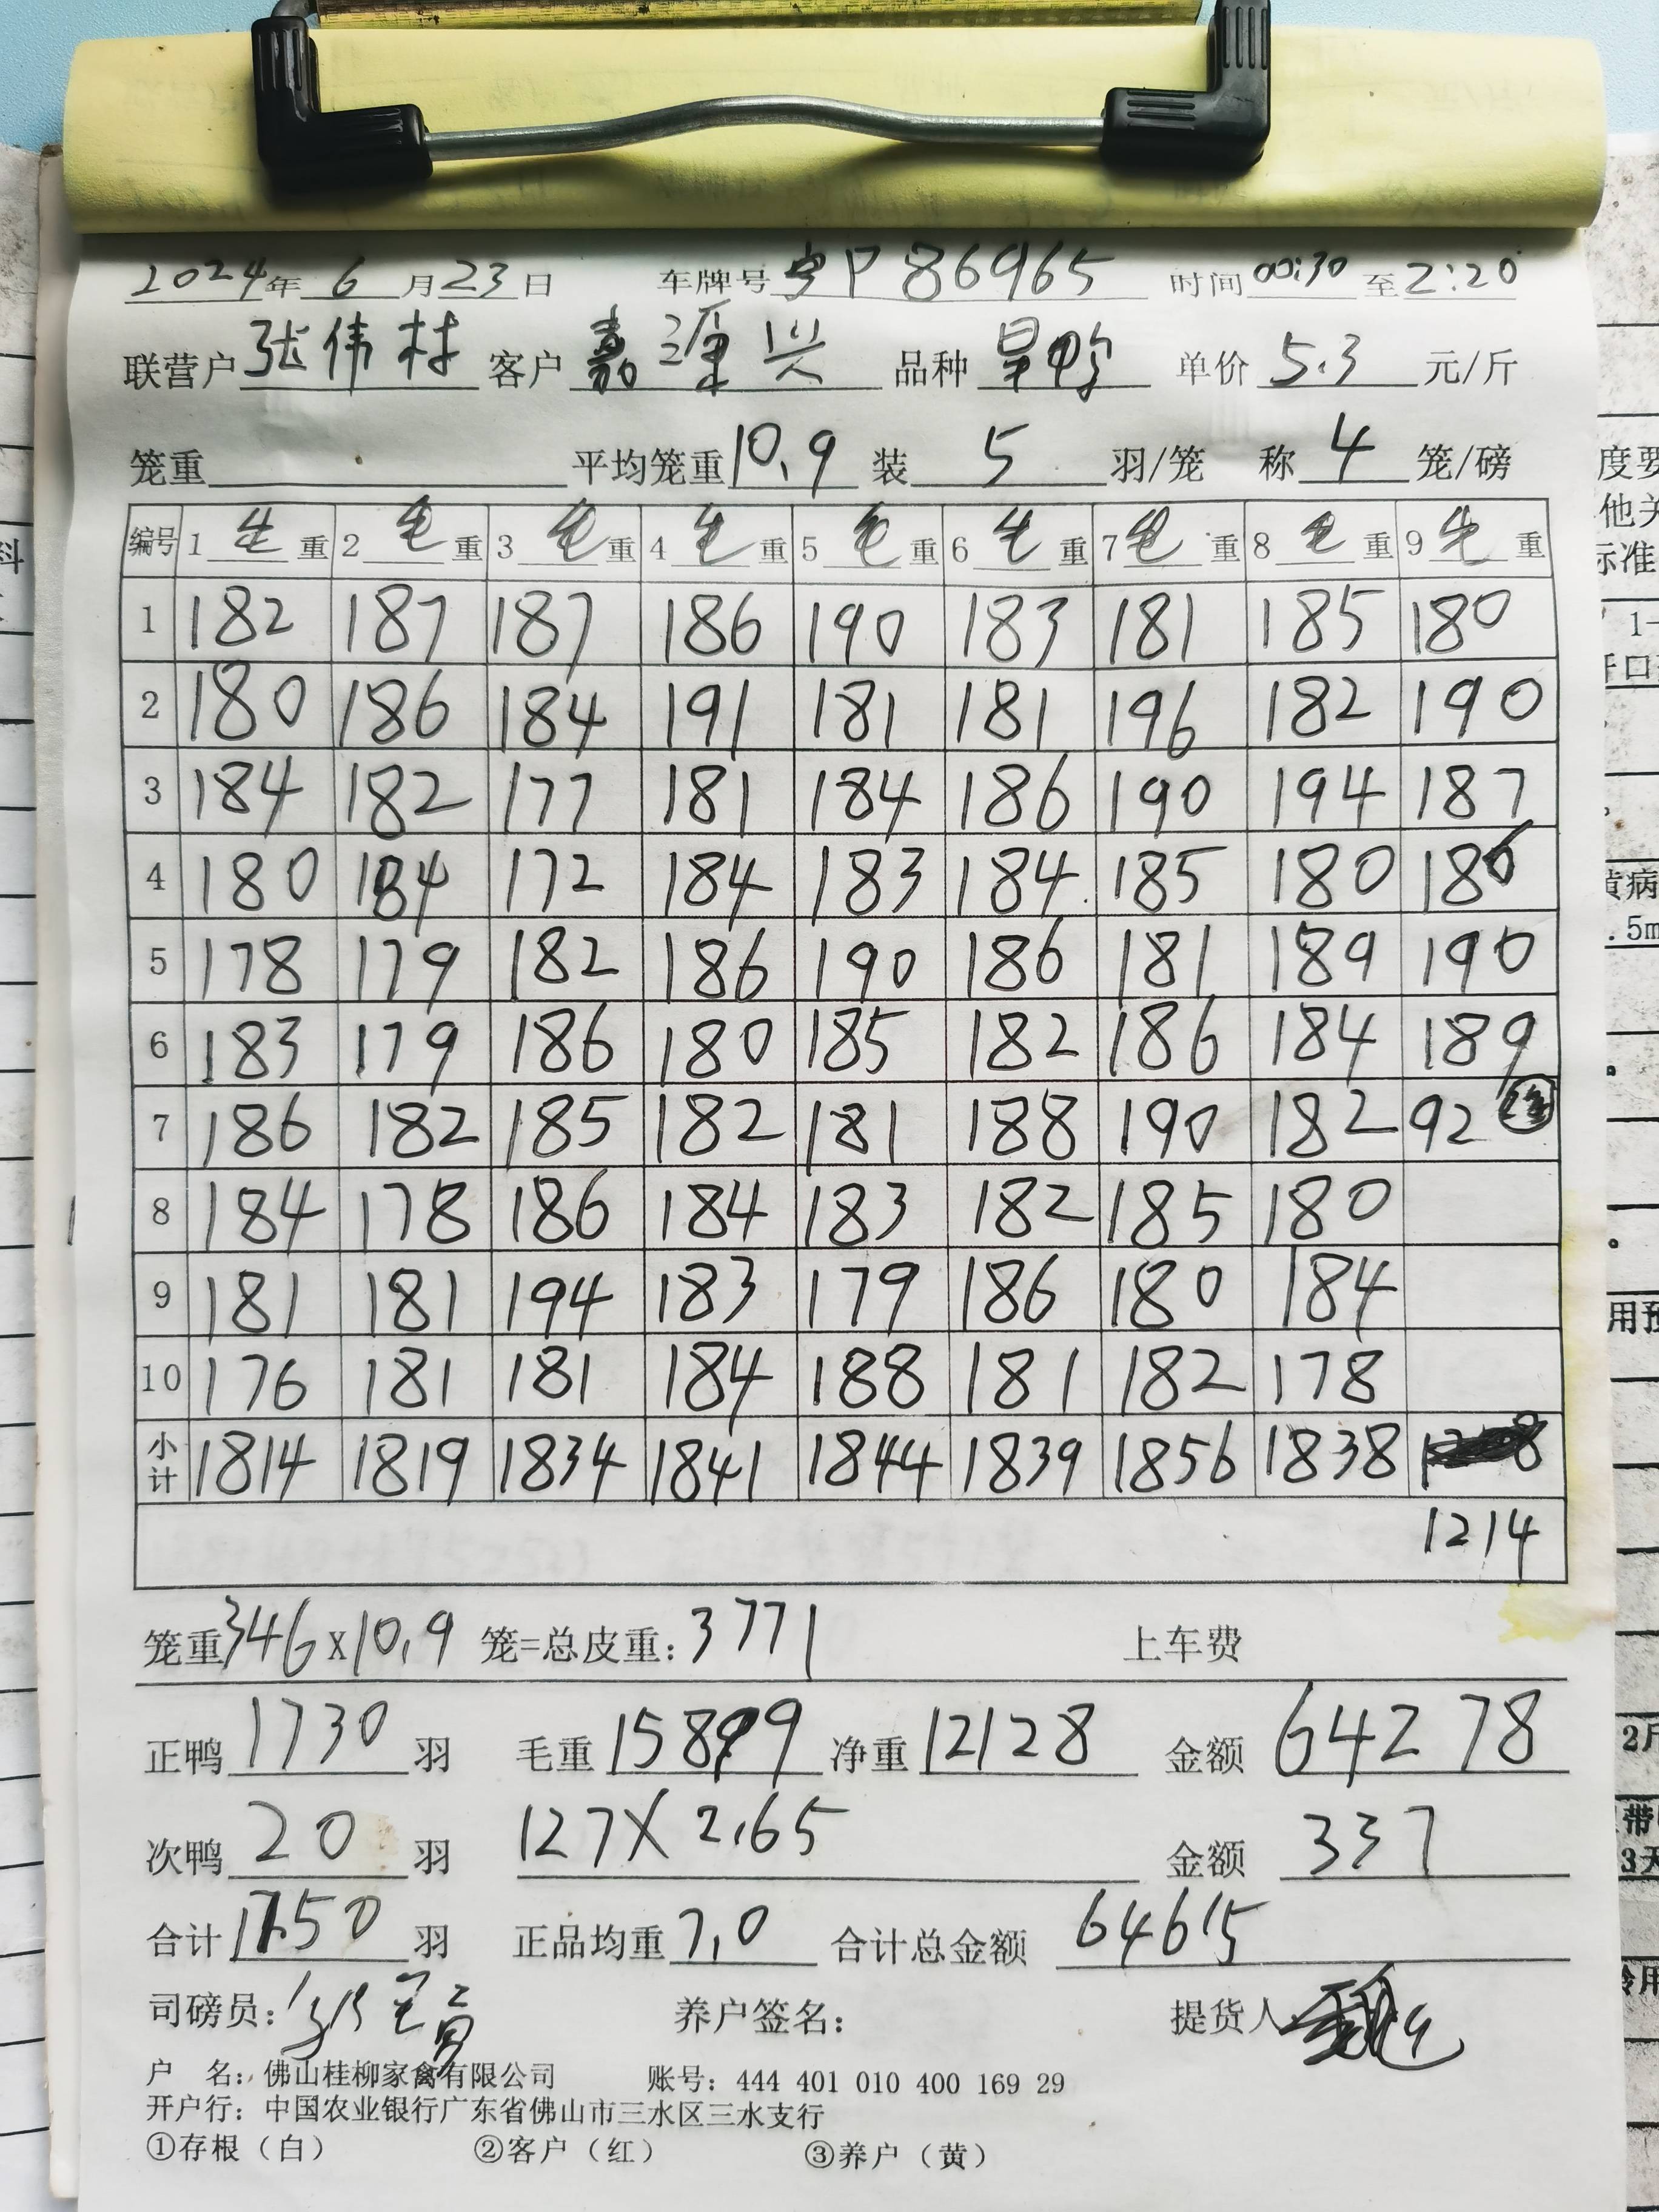 2024年 6 月 23 日 车牌号 粤P 86965 时间 00:30 至 2:20
联营户 张伟林 客户 嘉源兴 品种 旱鸭 单价 5.3 元/斤
笼重 平均笼重 10.9 装 5 羽/笼 称 4 笼/磅
编号 1 毛 重 2 毛 重 3 毛 重 4 毛 重 5 毛 重 6 毛 重 7 毛 重 8 毛 重 9 毛 重
1 182 187 187 186 190 183 181 185 180
2 180 186 184 191 181 181 196 182 190
3 184 182 177 181 184 186 190 194 187
4 180 184 172 184 183 184 185 180 186
5 178 179 182 186 190 186 181 189 190
6 183 179 186 180 185 182 186 184 189
7 186 182 185 182 181 188 190 182 92
8 184 178 186 184 183 182 185 180
9 181 181 194 183 179 186 180 184
10 176 181 181 184 188 181 182 178
小计 1814 1819 1834 1841 1844 1839 1856 1838
1214
笼重 346 X 10.9 笼=总皮重: 3771 上车费
正鸭 1730 羽 毛重 15899 净重 12128 金额 64278
次鸭 20 羽 127X2.65 金额 337
合计 1750 羽 正品均重 7.0 合计总金额 64615
司磅员: 养户签名: 提货人
户 名: 佛山桂柳家禽有限公司 账号: 444 401 010 400 169 29
开户行: 中国农业银行广东省佛山市三水区三水支行
①存根（白） ②客户（红） ③养户（黄）
度要
他关
标准
1-
开口
黄病
.5m
用预
2斤
带
3天
料